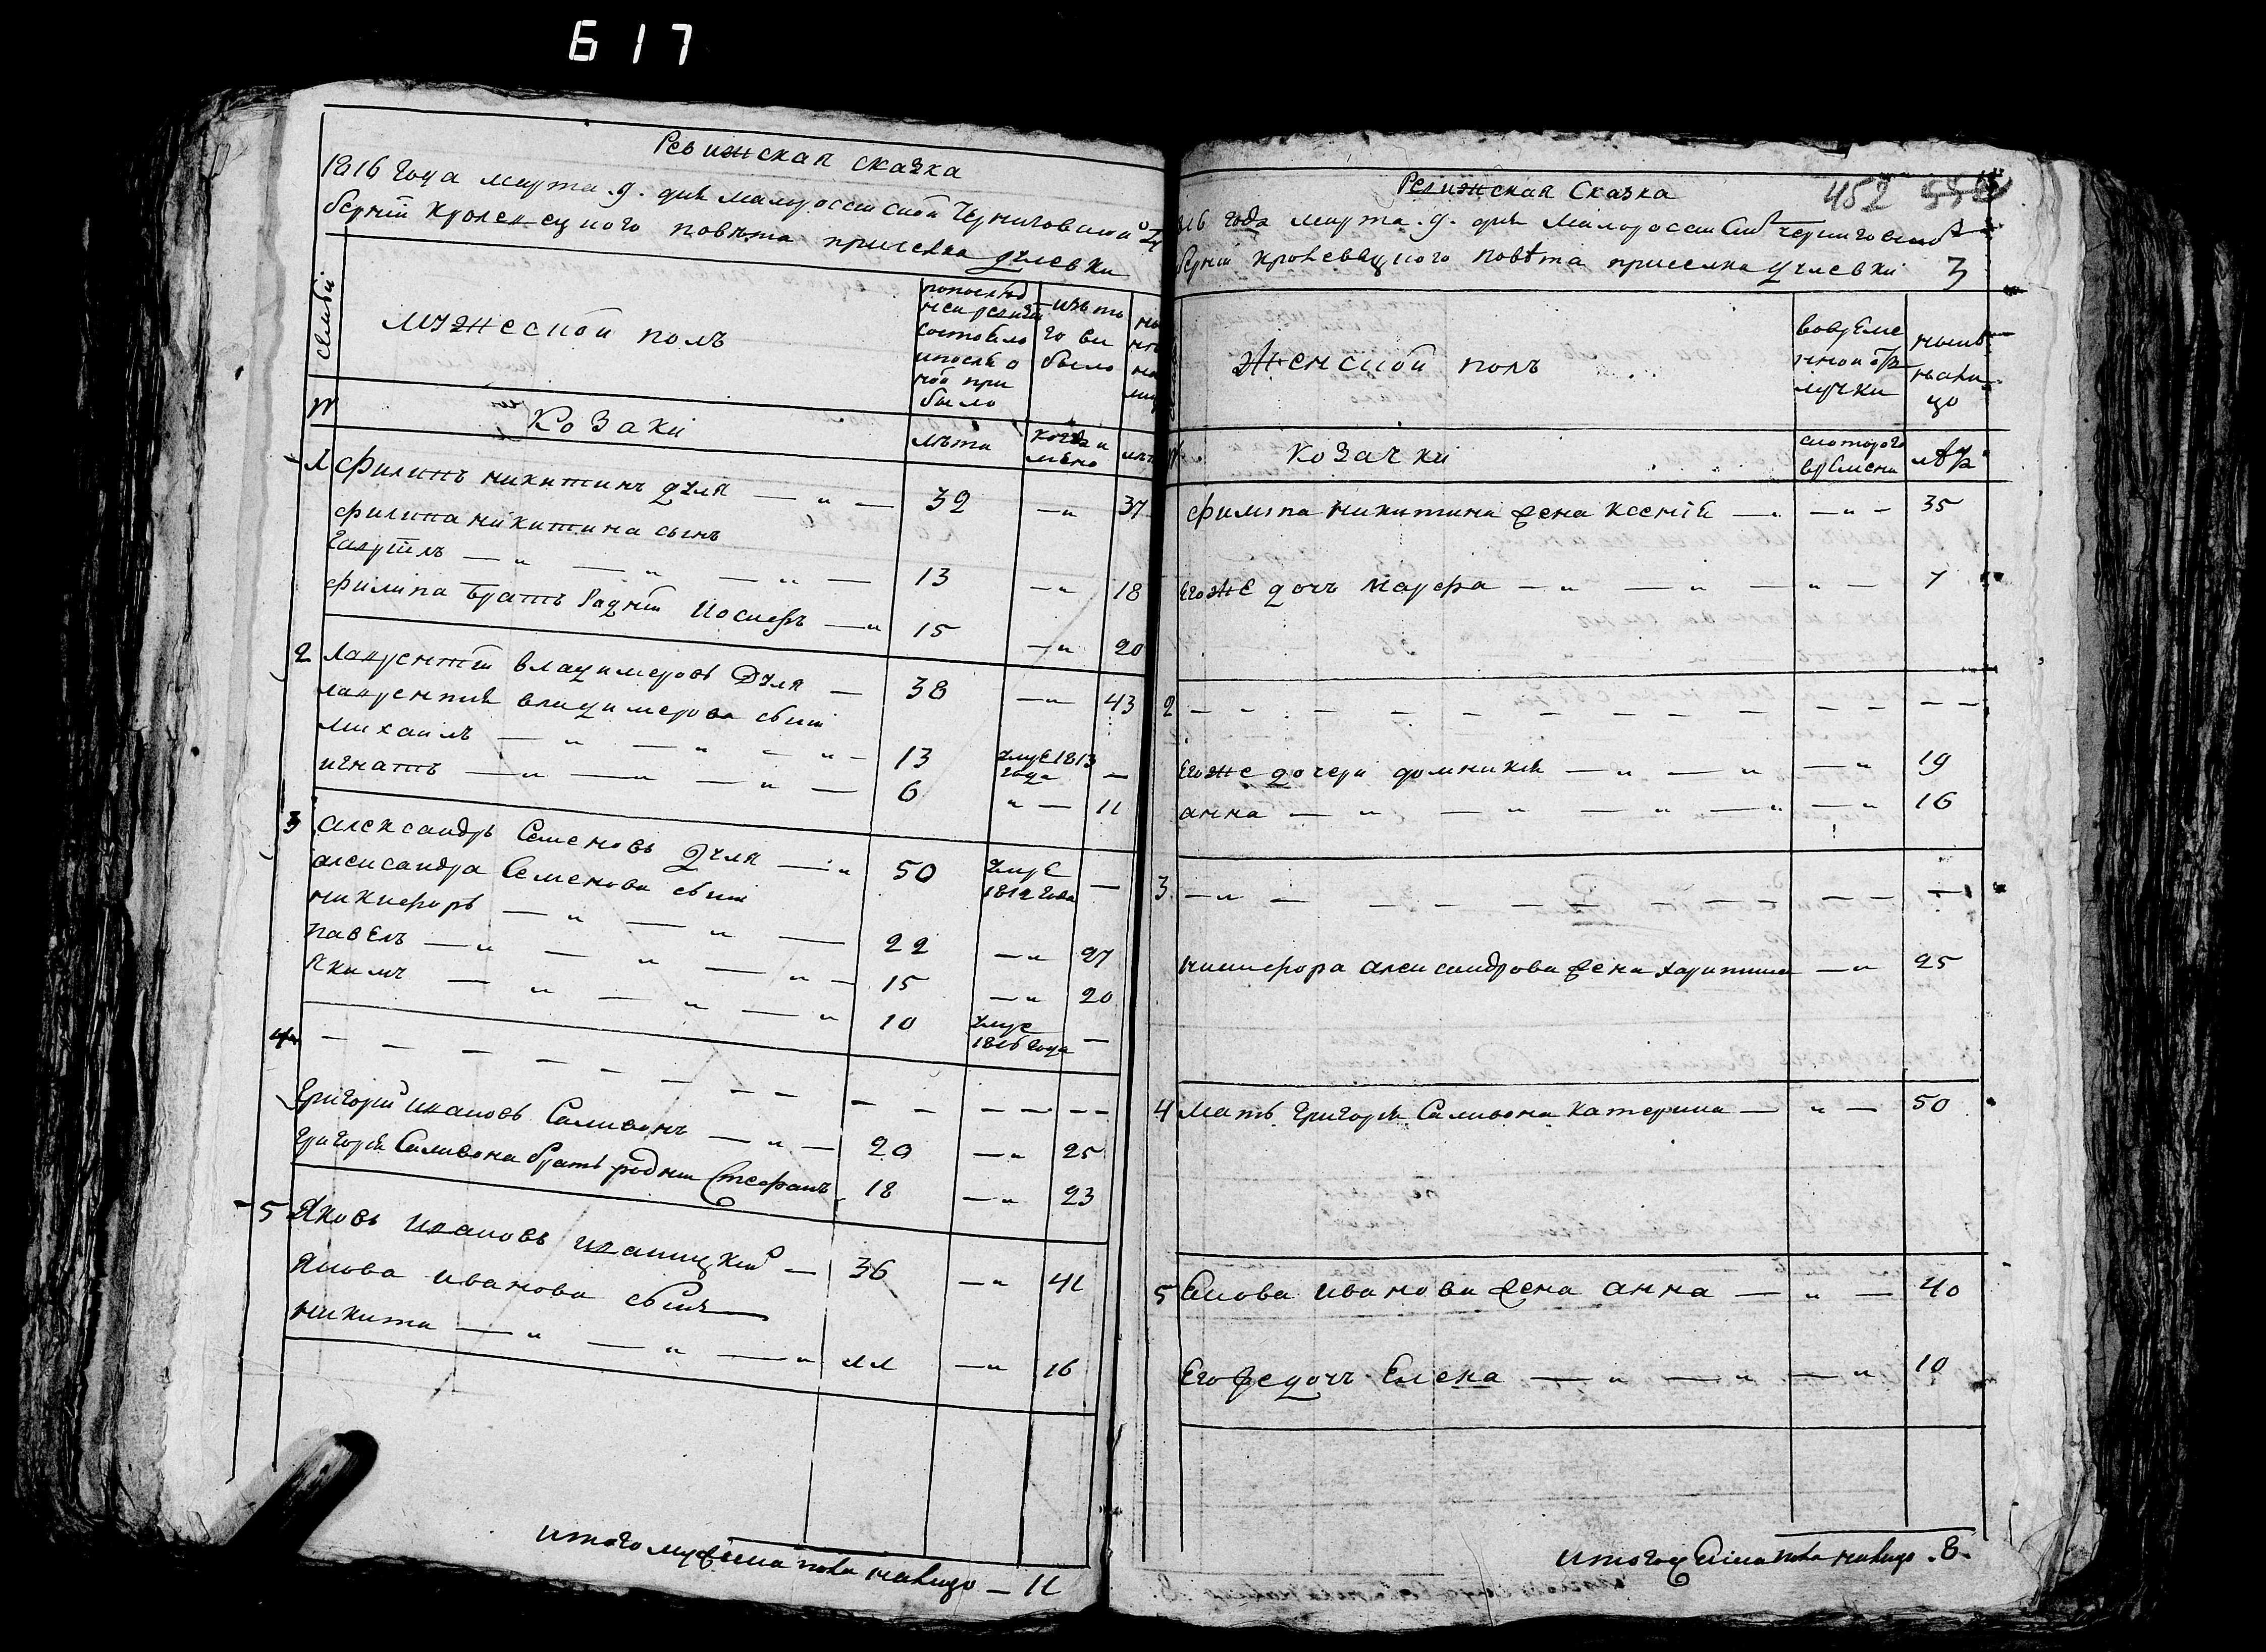 617
Ревижская сказка
1816 года марта 9 дня малороссийской Черниговской гу
берний кролевецкого повѣта приселка дулевки
семьи
мужеской полъ
попослед
ней ревизи
состояло
и после о
ной при
было
изъ то
го вы
было
№
Козаки
лѣта
когда и
мѣно
лѣта
1 филипъ никитинъ дуля — „ — 32 — „ 37
филипа никитина сынъ
— „ — „ — „ — 13 — „ 18
филипа братъ радній Иосифъ — „ 15 — „ 20
2 лаврентій владимеровъ Дуля — 38 — „ 43
лаврентия владимерова сыни
михаилъ — „ — „ — „ — 13 умре 1813 года —
игнатъ — „ — „ — „ — 6 „ — 11
3 александръ Семеновъ Дуля — „ 50 умре 1812 года —
александра Семенова сыни
никифоръ — „ — „ — 22 — „ 27
павелъ — „ — „ — „ — 15 — „ 20
якимъ — „ — „ — „ 10 умре 1816 года —
4 — — — — — — — — — — — — —
Григорий ивановъ Саливонъ — „ — 20 — „ 25
григория Саливона братъ родни Стефанъ 18 — „ 23
5 Яковъ ивановъ иваницкий — 36 — „ 41
якова иванова сынъ
никита — „ — „ — „ 11 — „ 16
итого мужеска пола налицо — 11
Ревижская Сказка
452 550
816 года марта 9 дня малороссийской черниговской гу
берний кролевецкого повѣта приселка дулевки 3
Женской полъ
вовреме
нной от
лучки
нынѣ
нали
цо
№
козачки
скоторого
времени
лѣта
филипа никитина жена ксения — „ — „ — 35
егоже дочъ марфа — „ — „ — „ — 7
2 — — — — — — — — — — — — —
егоже дочери домникия — „ — „ — „ 19
анна — „ — „ — „ — „ — „ 16
3 — „ — — — — — — — — — —
никифора александрова жена харитина — „ 25
4 мать григория Саливона катерина — „ — 50
5 Якова иванова жена анна — „ — 40
егоже дочъ Елена — „ — „ — „ 10
итого женска пола налицо . 8 .